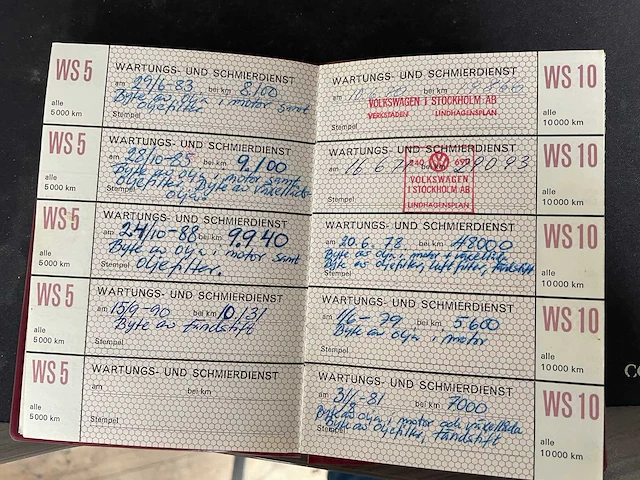 WS 5
alle
5 000 km
WARTUNGS- UND SCHMIERDIENST
am 29/6-83 bei km 8100
Byte av olja i motor samt
oljefilter
Stempel
WS 5
alle
5 000 km
WARTUNGS- UND SCHMIERDIENST
am 28/10-85 bei km 9100
Byte av olja i motor samt
oljefilter, Byte av växellåds-
olja.
Stempel
WS 5
alle
5 000 km
WARTUNGS- UND SCHMIERDIENST
am 24/10-88 bei km 9940
Byte av olja i motor samt
oljefilter.
Stempel
WS 5
alle
5 000 km
WARTUNGS- UND SCHMIERDIENST
am 15/9-90 bei km 10131
Byte av tändstift
Stempel
WS 5
alle
5 000 km
WARTUNGS- UND SCHMIERDIENST
am bei km
Stempel
WARTUNGS- UND SCHMIERDIENST
am bei km
VOLKSWAGEN I STOCKHOLM AB
VERKSTADEN LINDHAGENSPLAN
Stempel
WS 10
alle
10 000 km
WARTUNGS- UND SCHMIERDIENST
am 16 6 bei km 29093
VOLKSWAGEN
I STOCKHOLM AB
LINDHAGENSPLAN
Stempel
WS 10
alle
10 000 km
WARTUNGS- UND SCHMIERDIENST
am 20.6. 78 bei km 48000
Byte av olja i motor + växellåda
Byte av oljefilter, luftfilter, tändstift
Stempel
WS 10
alle
10 000 km
WARTUNGS- UND SCHMIERDIENST
am 1/6-79 bei km 5600
Byte av olja i motor
Stempel
WS 10
alle
10 000 km
WARTUNGS- UND SCHMIERDIENST
am bei km 7000
Byte av olja i motor och växellåda
Byte av oljefilter, tändstift
Stempel
WS 10
alle
10 000 km